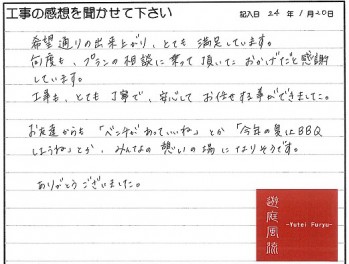 工事の感想を聞かせて下さい
記入日 24 年 1 月 20 日
希望通りの出来上がり、とても満足しています。
何度も、プランの相談に乗って頂いたおかげだと感謝
しています。
工事も、とても丁寧で、安心してお任せする事ができました。
お友達からも「ベンチがあっていいね」とか「今年の夏はBBQ
しようね」とか、みんなの憩いの場になりそうです。
ありがとうございました。
遊庭風流
-Yutei Furyu-